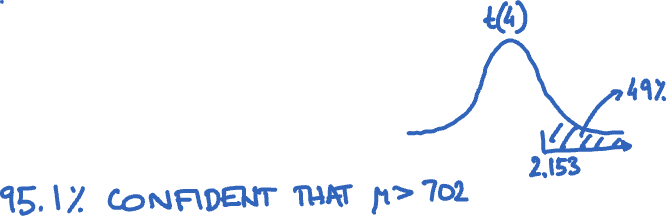 t(4)
49%
2.153
95.1% CONFIDENT THAT μ > 702